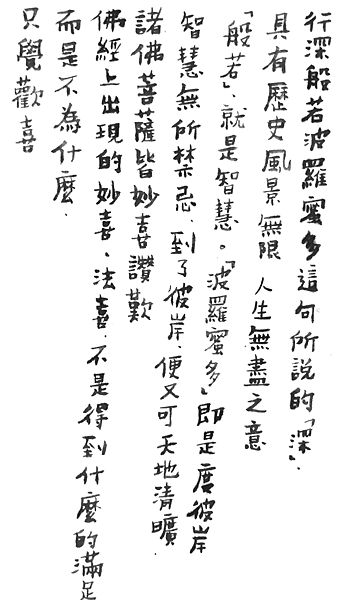 行深般若波羅蜜多這句所說的「深」.
具有歷史風景無限 人生無盡之意
「般若」、就是智慧。「波羅蜜多」即是度彼岸
智慧無所禁忌.到了彼岸.便又可天地清曠.
諸佛菩薩皆妙喜讚歎
佛經上出現的妙喜、法喜.不是得到什麼的滿足
而是不為什麼.
只覺歡喜